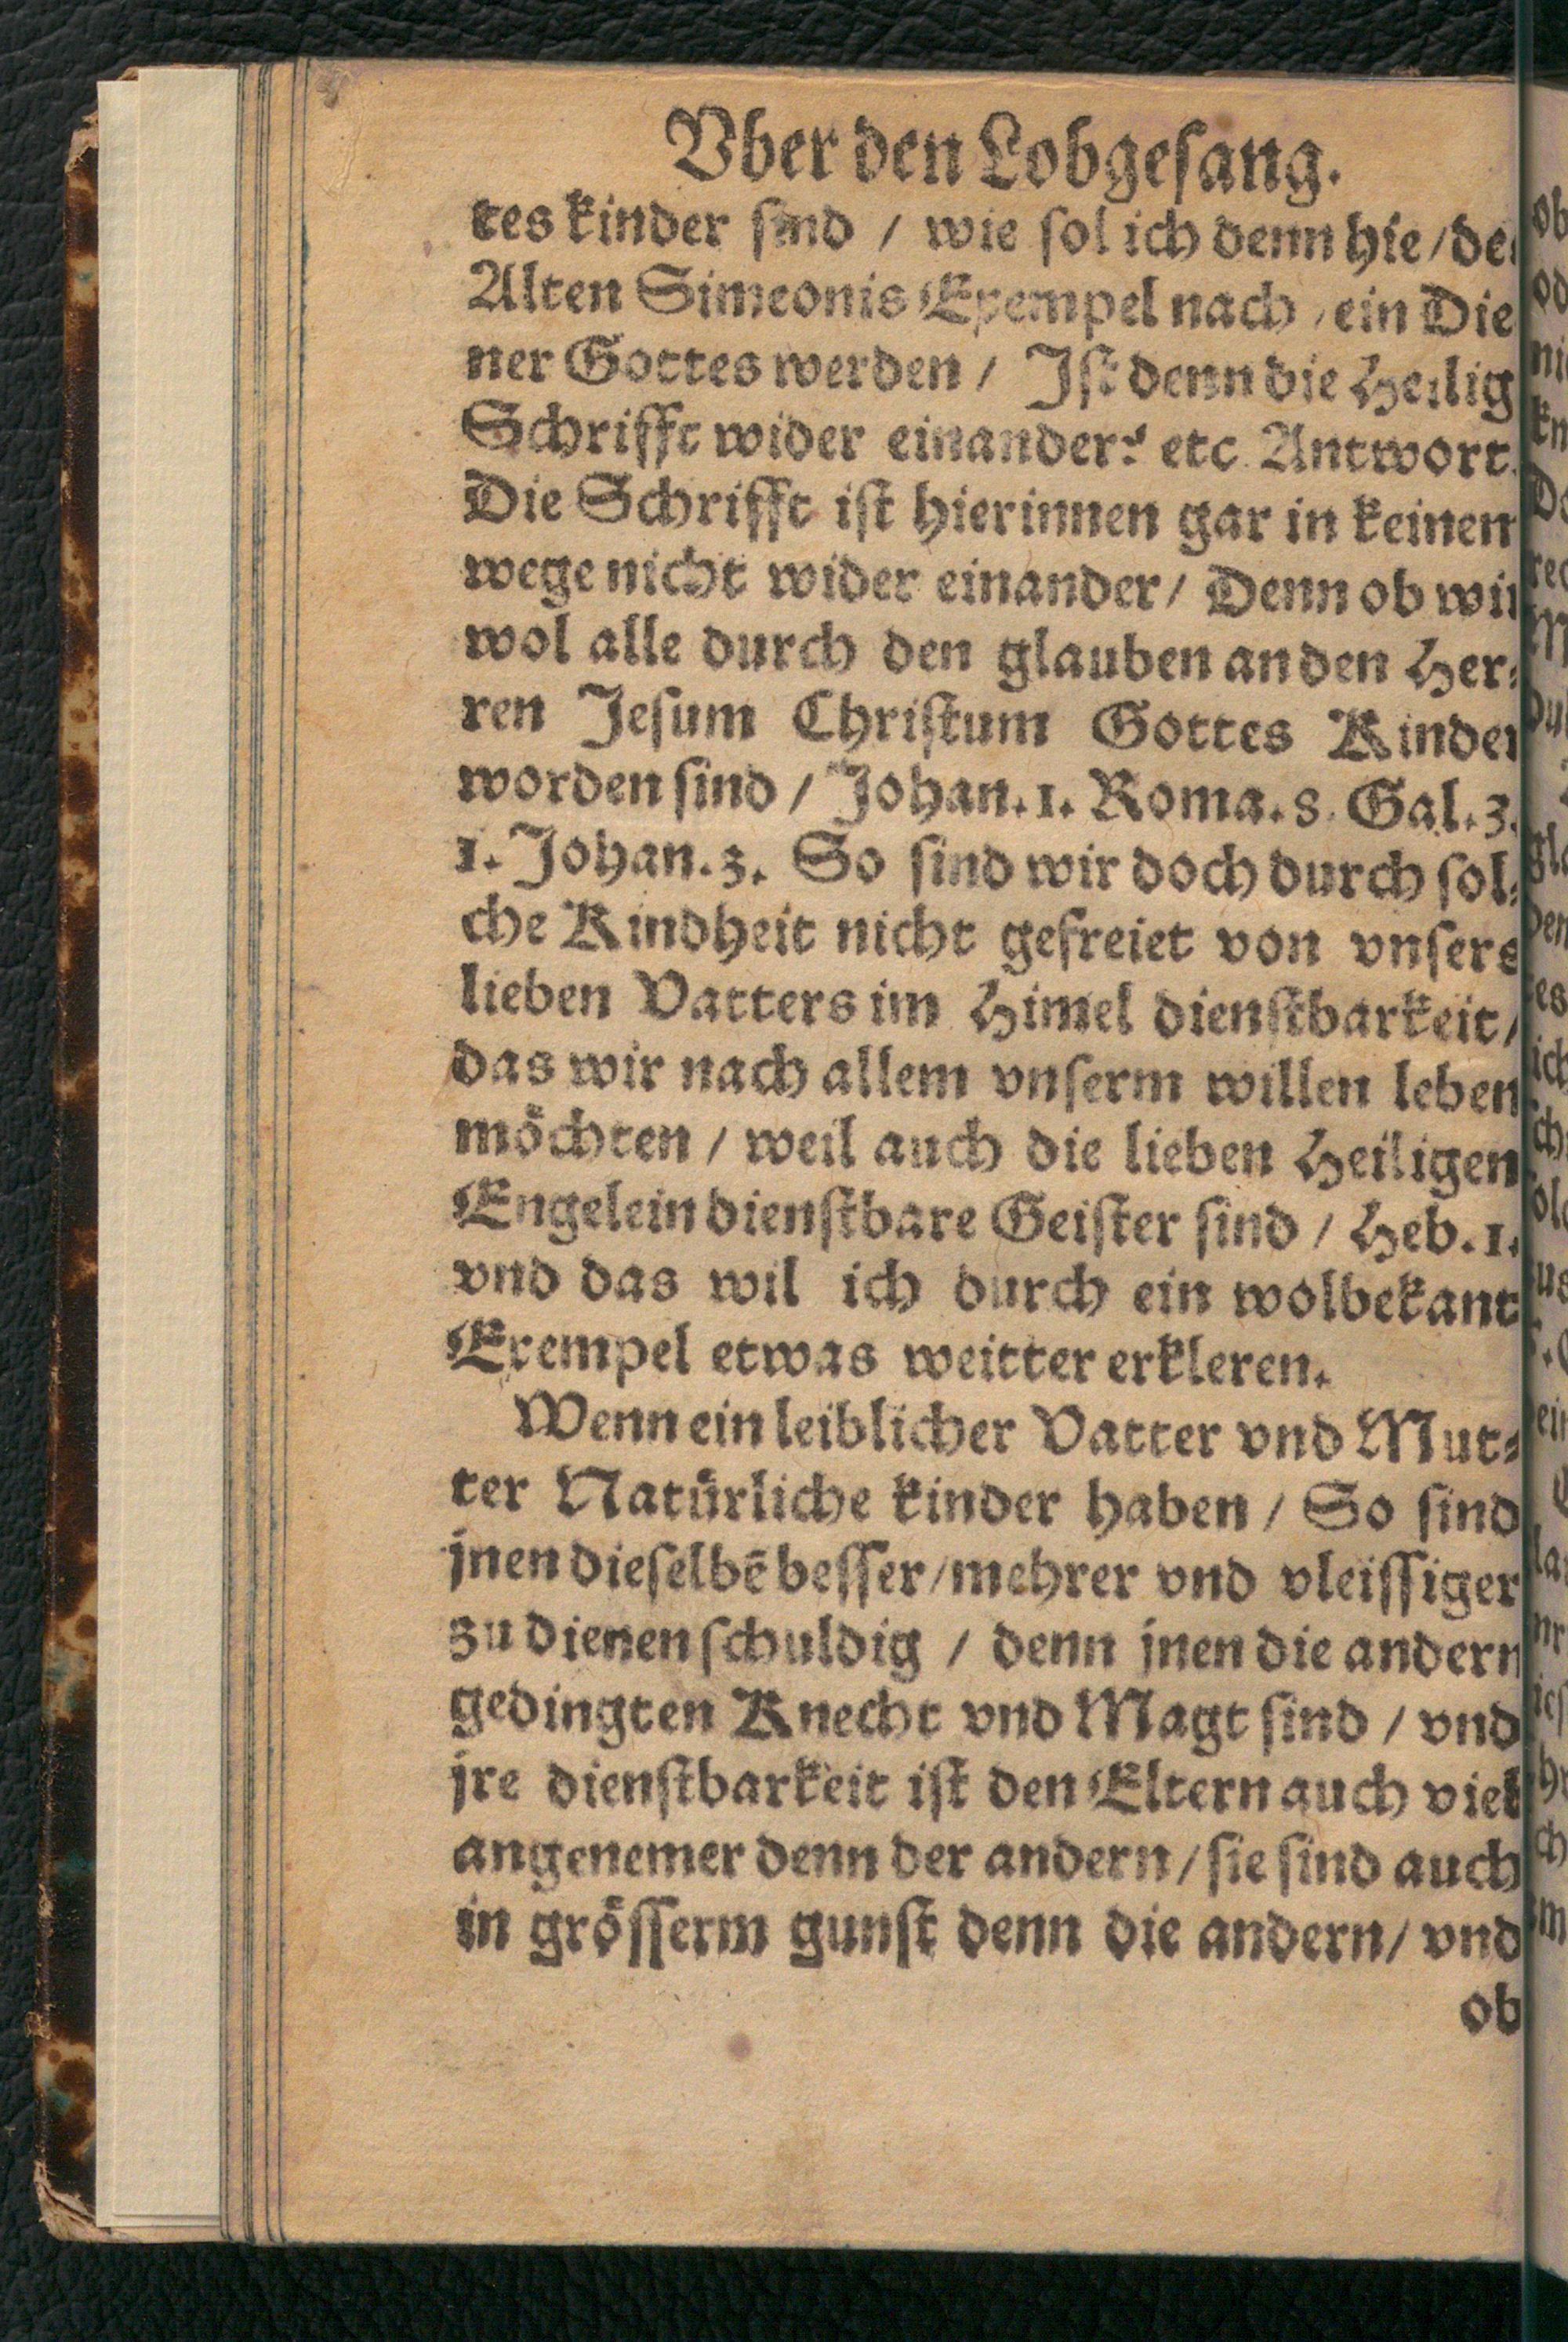 Vber den Lobgesang.
tes kinder sind / wie sol ich denn hie / de
Alten Simeonis Exempel nach / ein Die
ner Gottes werden / Ist denn die Heilig
Schrifft wider einander? etc. Antwort.
Die Schrifft ist hierinnen gar in keinen
wege nicht wider einander / Denn ob wir
wol alle durch den glauben an den Her-
ren Jesum Christum Gottes Kinder
worden sind / Johan. 1. Roma. 8. Gal. 3.
1. Johan. 3. So sind wir doch durch sol-
che Kindheit nicht gefreiet von vnsers
lieben Vatters im Himel dienstbarkeit /
das wir nach allem vnserm willen leben
möchten / weil auch die lieben Heiligen
Engelein dienstbare Geister sind / Heb. 1.
vnd das wil ich durch ein wolbekant
Exempel etwas weitter erkleren.
Wenn ein leiblicher Vatter vnd Mut-
ter Natürliche kinder haben / So sind
jnen dieselbē besser / mehrer vnd vleissiger
zu dienen schuldig / denn jnen die andern
gedingten Knecht vnd Magt sind / vnd
jre dienstbarkeit ist den Eltern auch viel
angenemer denn der andern / sie sind auch
in grösserm gunst denn die andern / vnd
ob